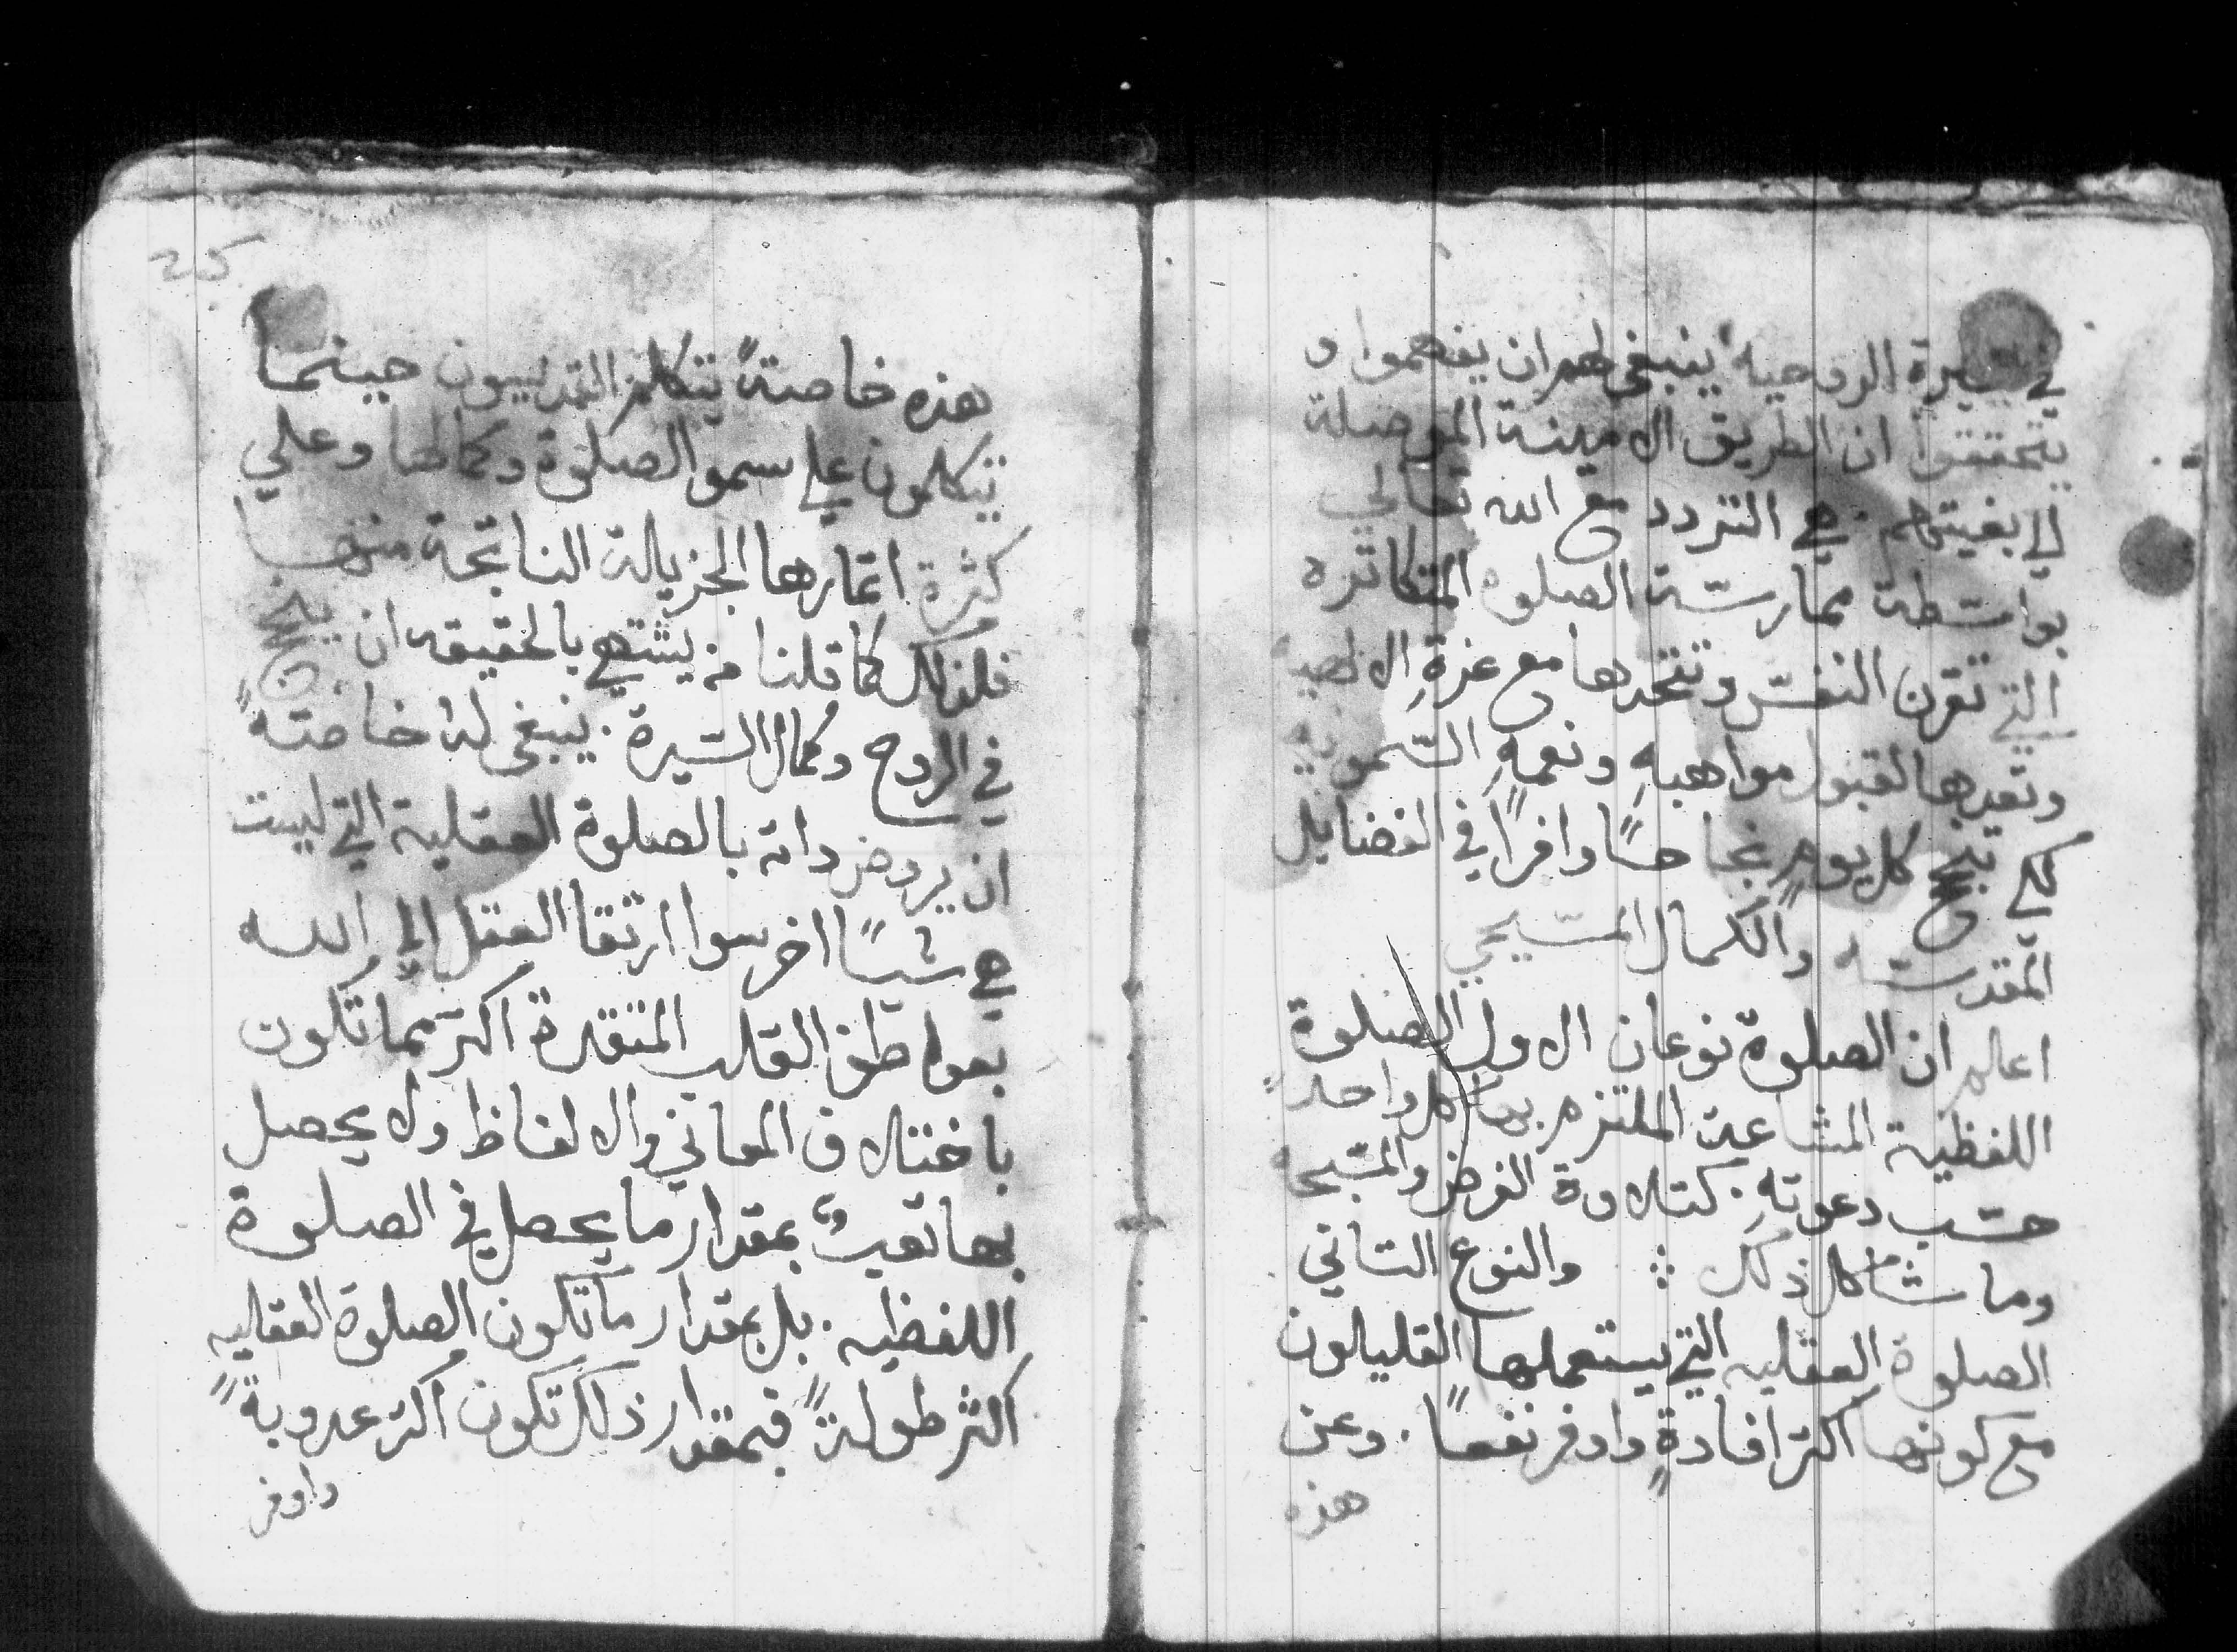 في السيرة الروحيه ينبغي لهم ان يفهموا و
يتحققوا ان الطريق الامينة الموصلة
الي بغيتهم . هي التردد مع الله تعالي
بواسطة ممارسة الصلوه المتكاتره
التي تقرن النفس وتتحدها مع عزةِ الالهيه
وتعدها لقبول مواهبهِ ونعمهِ السمويه
لكي تنجح كل يومٍ نجاحًا وافرًا في الفضايل
المقدسه والكمال المسيحي
اعلم ان الصلوة نوعان الاول الصلوة
اللفظية المشاعة الملتزم بها كل واحد
حسب دعوتهِ . كتلاوة الفرض والمسبحه
وما شاكل ذلك ⁘ والنوع التاني
الصلوة العقليه التي يستعملها القليلون
مع كونها اكتر افادةٍ واوفر نفعًا . وعن
هذه
25
هذه خاصةً يتكلم القديسون حينما
يتكلمون علي سمو الصلوة وكمالها وعلي
كثرة اتمارها الجزيلة الناتجة منها
فلذلك كما قلنا من يشتهي بالحقيقه ان
في الروح وكمال السيرة . ينبغي له خاصةً
ان يروض داته بالصلوة العقلية التي ليست
هي شيًا اخر سوا ارتقا العقل الي الله
بعواطف القلب المتقدة اكتر مما تكون
باختلاف المعاني والالفاظ ولا يحصل
بها تعبٌ بمقدار ما يحصل في الصلوة
اللفظيه . بل بمقدار ما تكون الصلوة العقليه
اكثر طولةً فبمقدار ذلك تكون اكتر عدوبةً
واوفر